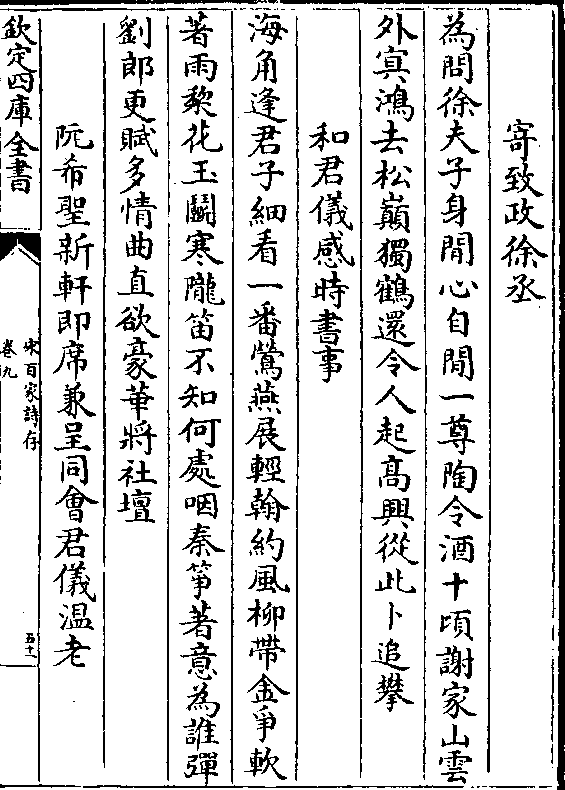 寄致政徐丞
為問徐夫子身閒心自閒一尊陶令酒十頃謝家山雲
外寘鴻去松巔獨鶴還令人起高興從此卜追攀
和君儀感時書事
海角逢君子細看一番鶯燕展輕翰約風柳帶金爭軟
著雨棃花玉鬭寒隴笛不知何處咽秦箏著意為誰彈
劉郎更賦多情曲直欲豪華將社壇
阮希聖新軒即席兼呈同會君儀温老
欽定四庫全書
宋百家詩存
卷九